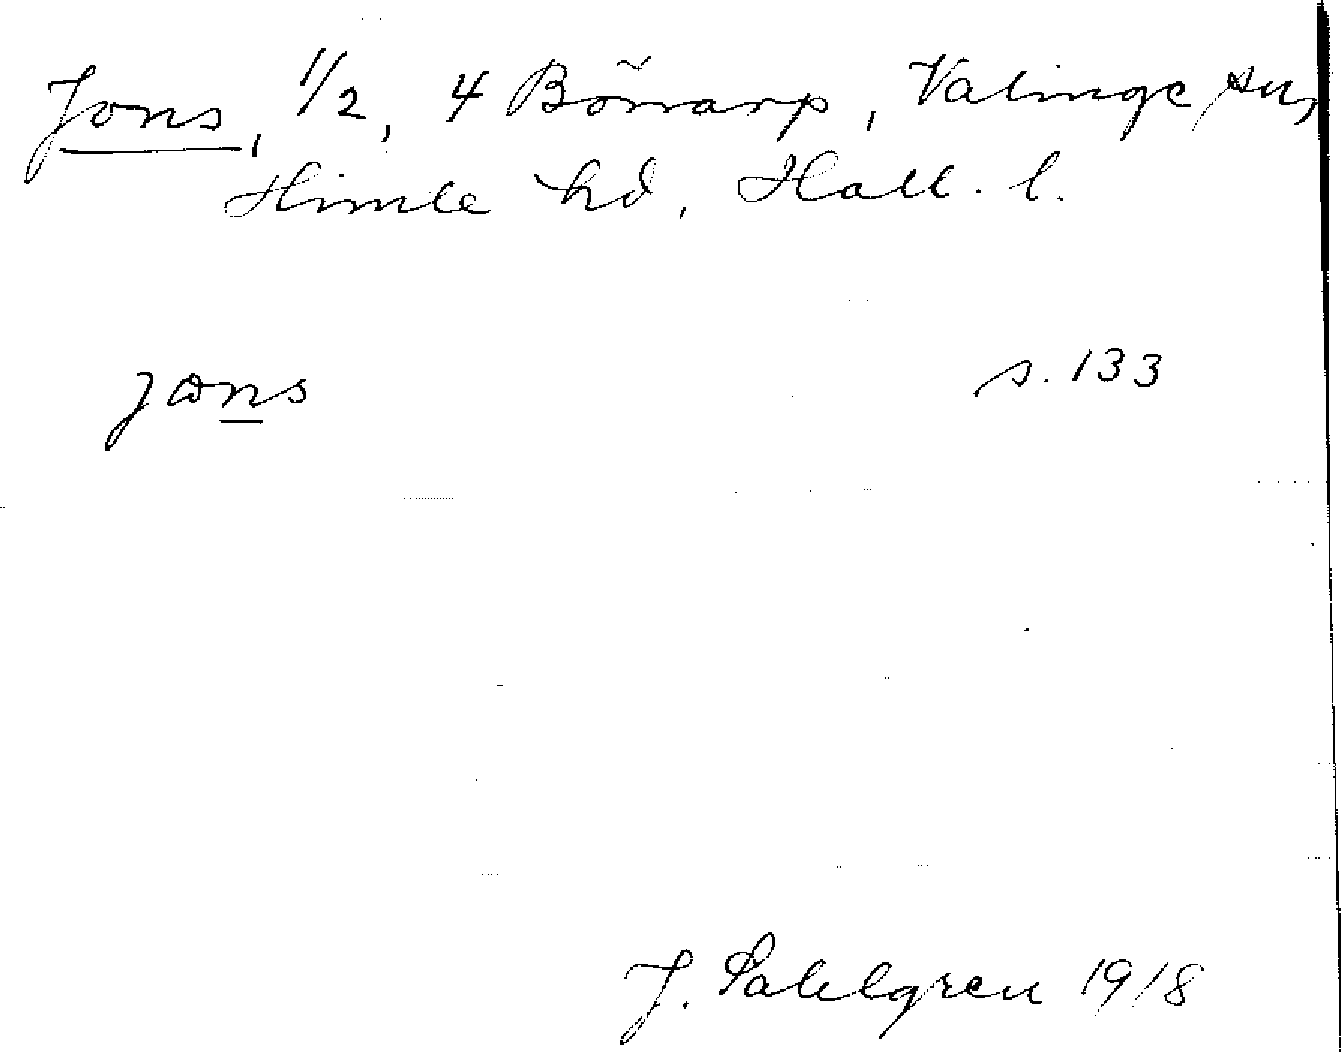 Jöns, 1/2, 4 Bönarp, Valinge sn,
Himle hd, Hall. l.
jøns s. 133
J. Sahlgren 1918